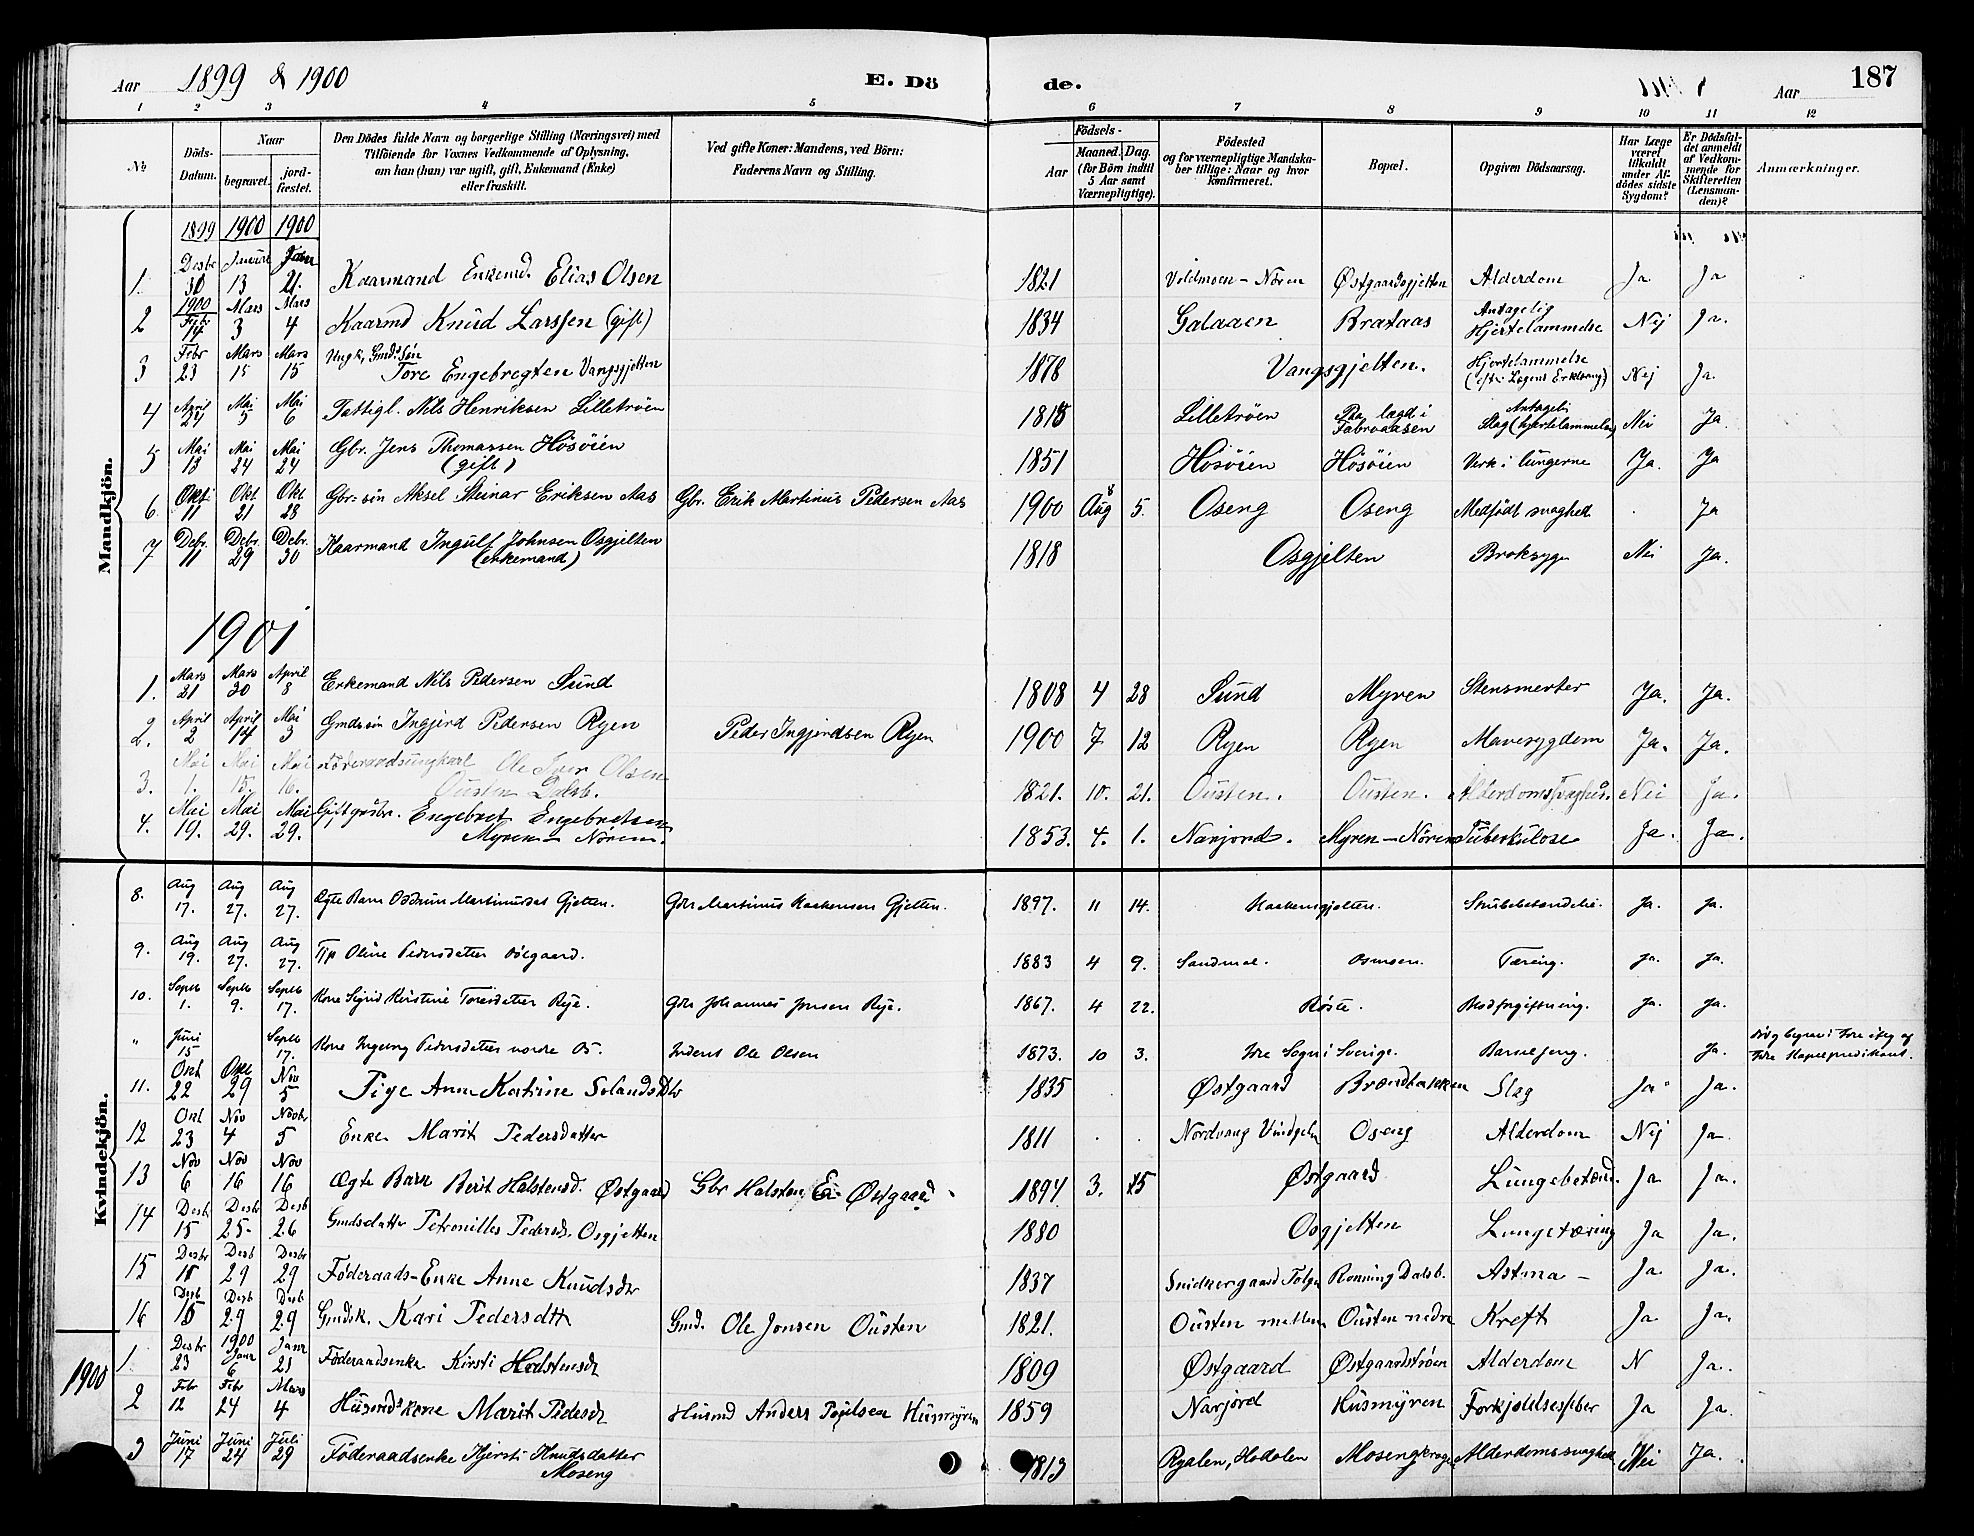 Aar 1899 & 1900 E. Dö de. Aar 187
1 2 3 4 5 6 7 8 9 10 11 12
№ Döds-Datum. Naar begravet. jord-fæstet. Den Dödes fulde Navn og borgerlige Stilling (Næringsvei) med Tilföiende for Voxnes Vedkommende af Oplysning, om han (hun) var ugift, gift, Enkemand (Enke) eller fraskilt. Ved gifte Koner: Mandens, ved Börn: Faderens Navn og Stilling. Födsels- Aar Maaned. Dag. (for Börn indtil 5 Aar samt Værnepligtige). Födested og for værnepligtige Mandskaber tillige: Naar og hvor konfirmeret. Bopæl. Opgiven Dödsaarsag. Har Læge været tilkaldt under Afdödes sidste Sygdom? Er Dödsfaldet anmeldt af Vedkommende for Skifteretten (Lensmanden)? Anmærkninger.
Mandkjön.
1899 1900 1900
1. Desbr 30 13 Janr 21. Kaarmand Enkemd. Elias Olsen 1821 Östgaardsgjelten Alderdom Ja Ja
2 1900 Febr 14 Mars 3 Mars 4 Kaarmd Knud Larssen (gift) 1834 Galaaen Brataas Antagelig Hjertelammelse Nej Ja.
3 Febr 23 Mars 15 Mars 15 Ungk, Gmds søn Tore Engebregten Vangsgjelten 1878 Vangsgjelten. Hjertelammelse (efter Lægens Erklæring) Nej Ja.
4 April 24 Mai 5 Mai 6 Fattigl. Nils Henriksen Lilletröen 1815 Lilletröen Paa lægd i Slag (hjertelammelse) Nei Ja.
5 Mai 13 Mai 24 Mai 24 Gbr. Jens Thomassen Hösöien (gift) 1851 Hösöien Hösöien Verk i lungerne Ja. Ja
6. Okt 11 Okt 21 Okt 28 Gbr: sön Aksel Steinar Eriksen Aas Gbr. Erik Martinus Pedersen Aas 1900 Aug 8 5. Oseng Oseng Medfödt svaghed. Ja
7 Debr. 11 Debr. 29 Debr. 30 Kaarmand Ingulf Johnsen Osgjelten (enkemand) 1818 Osgjelten Broksyge Nei Ja.
1901
1. Mars 21 Mars 30 April 8 Enkemand Nils Pedersen Sund 1808 4 28 Sund Myren Stensmerter Ja. Ja.
2. April 2 April 14 Mai 3 Gmdssön Ingjerd Pedersen Ryen Peder Ingjerdsen Ryen 1900 7 12 Ryen Ryen Mavesygdom Ja. Ja.
3. Mai 1. Mai 15. Mai 16. Föderaadsungkarl Ole Iver Olsen Ousten Dalsb. 1821. 10. 21. Ousten. Ousten. Alderdomssvaghed. Nei Ja.
4. Mai 19. Mai 29. Mai 29. Gift gaardbr. Engebret Engebretsen Myren Nören. 1853. 4. 1. Narjord. Myren-Nören Tuberkulose Ja. Ja.
Kvindekjön.
8. Aug 17. Aug 27. Aug 27. Ægte Barn Oddrun Martinusdat Gjelten. Gbr Martinus Haakensen Gjelten. 1897. 11 14. Haakensgjelten. Strubebetændelse. Ja. Ja.
9. Aug 19. Aug 27. Aug 27. Oline Pedersdatter 1883 4 9. Sandmoe. Osmoen. Tæring. Ja. Ja.
10. Septb 1. Septb 9. Septb 17. Kone Sigrid Kristine Toresdatter Rye. Gbr Johannes Jonsen Rye. 1867. 4 22. Röste. Blodforgiftning. Ja. Ja.
" Juni 15 Septb 17. Kone Ingeborg Pedersdatter nordre Os. Inderst Ole Olsen 1873. 10 3. Idre Sogn i Sverige. Barselseng. Ja.
11. Okt 22 Okt 29 Nov 5 Pige Anne Katrine Solandsdtr 1835 Östgaard Brændbakken Slag Ja Ja.
12 Okt 23 Nov 4 Novbr 5 Enke Marit Pedersdatter 1811 . . Nordvang Vindgeln Oseng Alderdom Nej Ja.
13 Nov 6 Nov 16 Nov 16 Ægte Barn Berit Halstensd. Östgaard Gbr Halsten E. Östgaard 1894 3. 15 Östgaard Lungebetænd. Ja Ja.
14 Desb 15 Desbr 25- Desb 26 Gmdsdatter Petronilles Pedersd. Osgjelten 1880 Osgjelten Lungetæring Ja Ja.
15 Desbr 18 Desb 29 Desbr 29 Föderaads-Enke Anne Knudsdtr 1837 Snidkergaard Tolgen Ronning Dalsb. Astma - Ja Ja.
16 Desb 15 Desb 29 Desb 29 Gmdsk. Kari Pedersdtt Gmd. Ole Jonsen Ousten 1821. Ousten mellem Ousten nedre Kreft Ja Ja.
1900
1. Desbr 23 1900 Janr 6 Janr 21 Föderaadsenke Kirsti Halstensdr 1809 Östgaard Östgaardströen Alderdom N Ja.
2 Febr 12 Febr 24 Mars 4 Husmds kone Marit Pedersdr Husmd Anders Husmyren 1859 Narjord Husmyren Forkjölelsesfeber Ja Ja.
3 Juni 17 Juni 24 Juli 29 Föderaadsenke Kjersti Knudsdatter Moseng 1813 Ryalen, Hodalen Mosengkrogen Alderdomssvaghed Nei Ja.